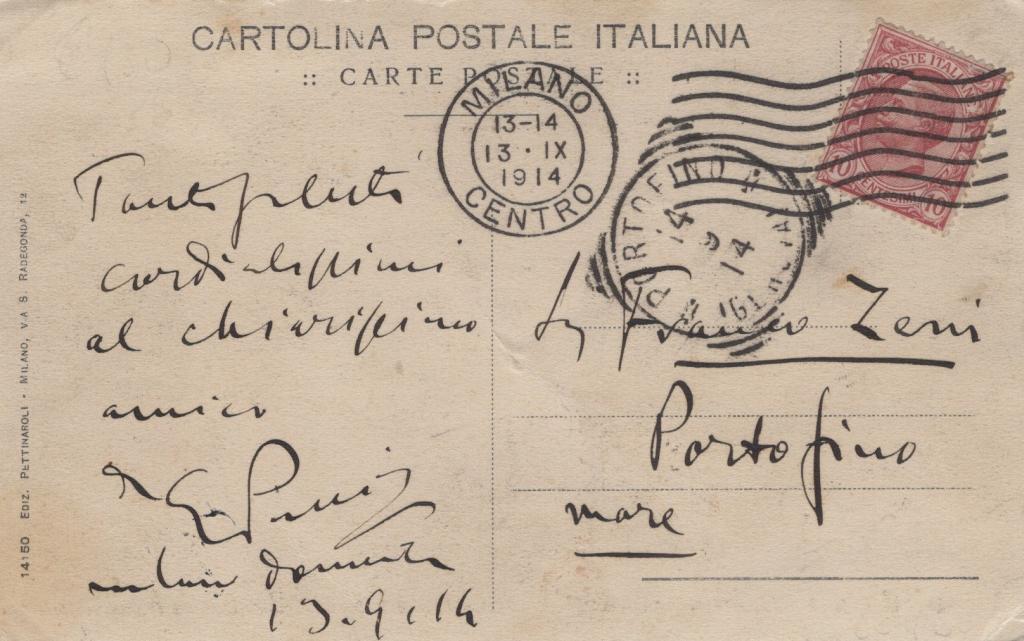 CARTOLINA POSTALE ITALIANA
:: CARTE POSTALE ::
MILANO
13-14
13 · IX
1914
CENTRO
POSTE ITALIANE
10 CENTESIMI 10
PORTOFINO
14 9 14
cordialissimi
al chiarissimo
amico
13.9.14
Franco Zeni
Portofino
mare
14150 EDIZ. PETTINAROLI - MILANO, VIA S. RADEGONDA, 12